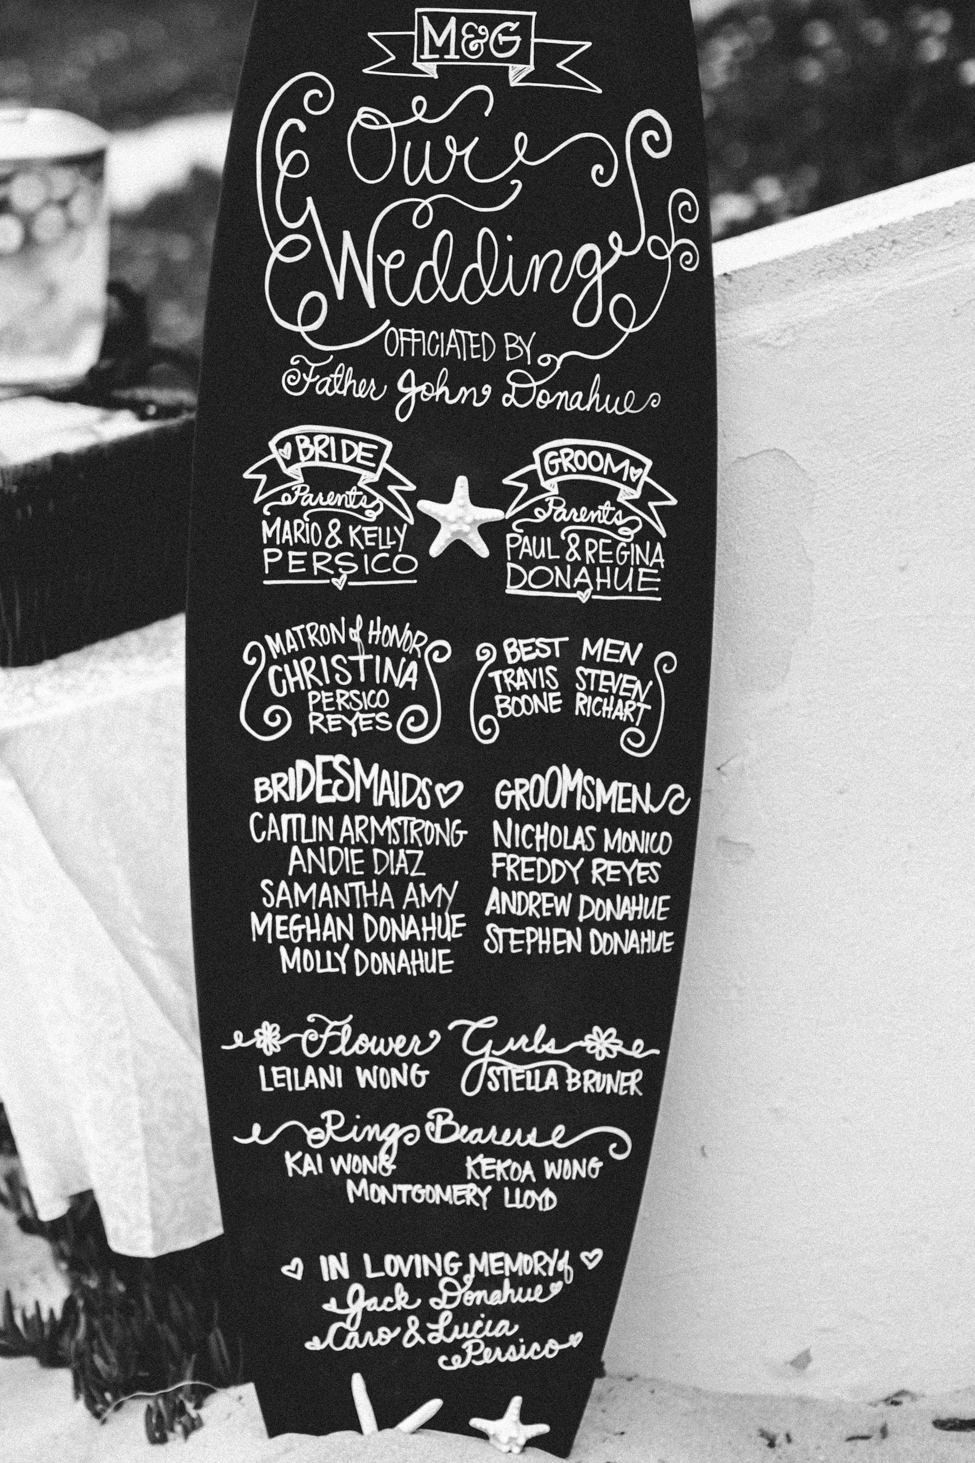 M&G
Our
Wedding
OFFICIATED BY
Father John Donahue
BRIDE
Parents
MARIO & KELLY
PERSICO
GROOM
Parents
PAUL & REGINA
DONAHUE
MATRON of HONOR
CHRISTINA
PERSICO
REYES
BEST MEN
TRAVIS STEVEN
BOONE RICHART
BRIDESMAIDS
CAITLIN ARMSTRONG
ANDIE DIAZ
SAMANTHA AMY
MEGHAN DONAHUE
MOLLY DONAHUE
GROOMSMEN
NICHOLAS MONICO
FREDDY REYES
ANDREW DONAHUE
STEPHEN DONAHUE
Flower Girls
LEILANI WONG STELLA BRUNER
Ring Bearers
KAI WONG KEKOA WONG
MONTGOMERY LLOYD
IN LOVING MEMORY of
Jack Donahue
Caro & Lucia
Persico